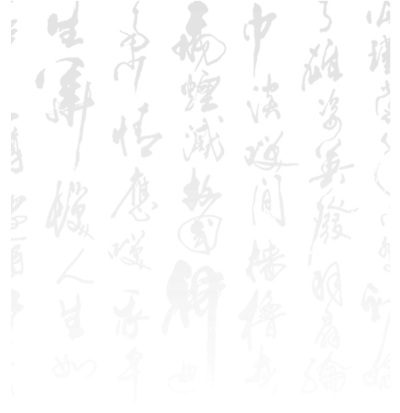 了雄姿英發羽扇綸
巾談笑間檣櫓灰
飛煙滅故國神遊
多情應笑我早
生華髮人生如